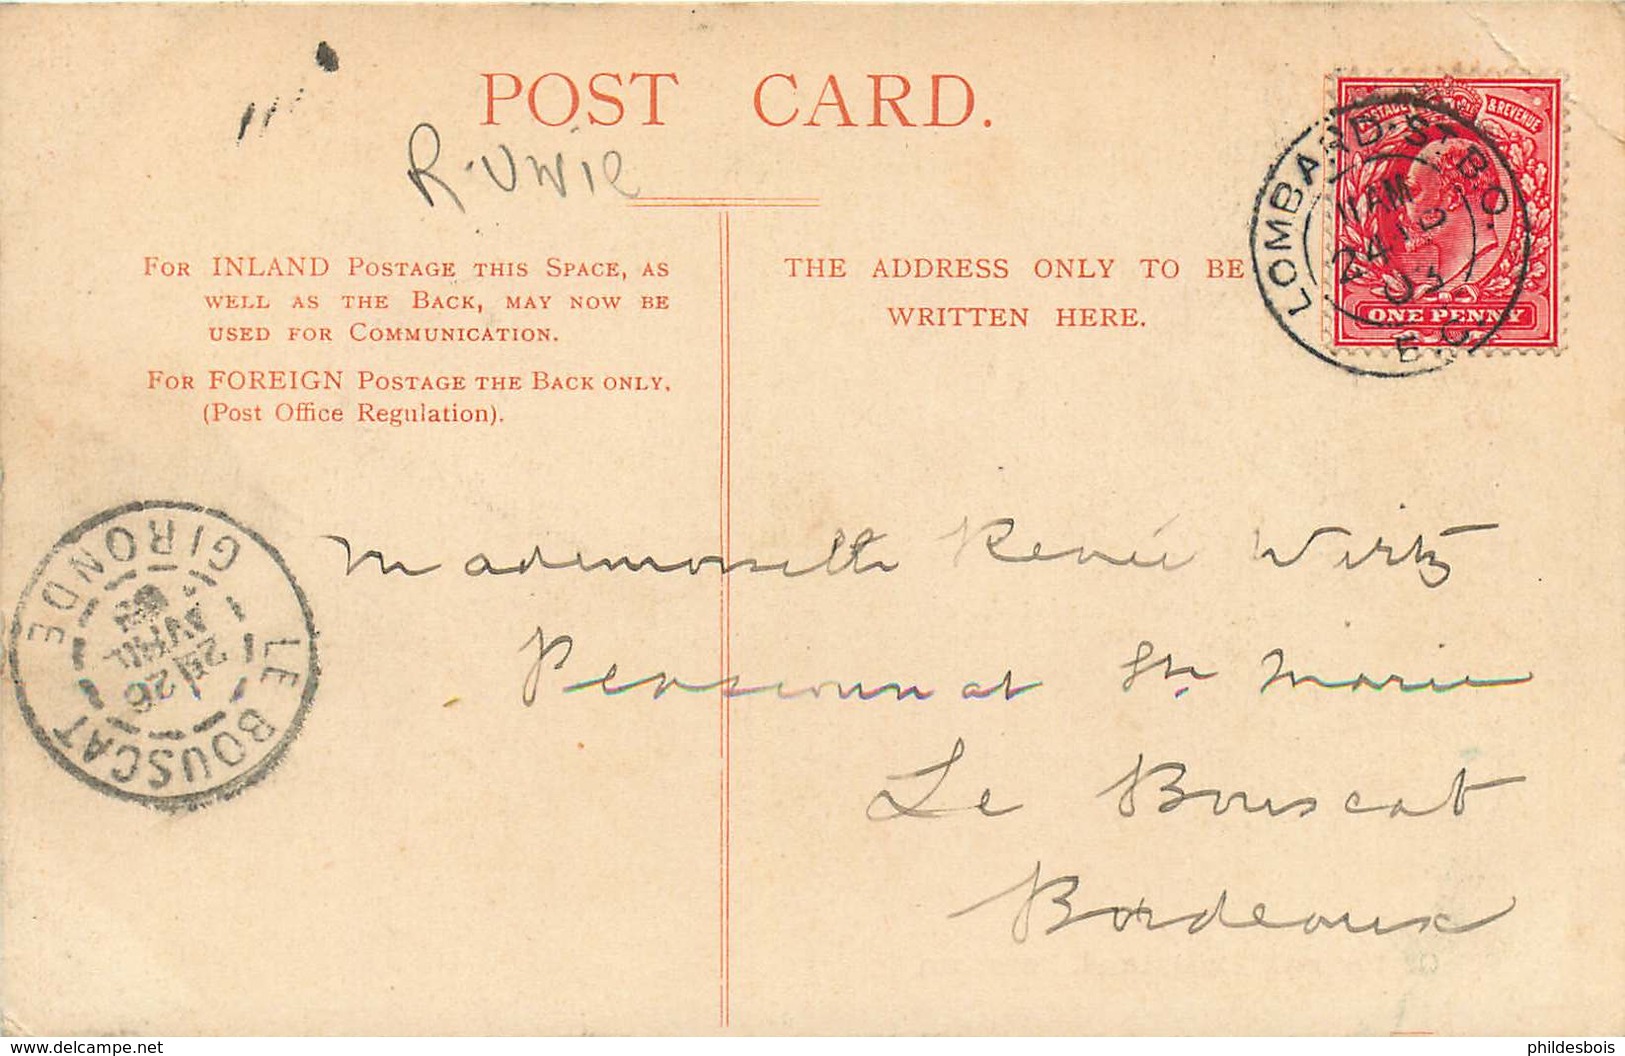 POST CARD.
FOR INLAND POSTAGE THIS SPACE, AS
WELL AS THE BACK, MAY NOW BE
USED FOR COMMUNICATION.
FOR FOREIGN POSTAGE THE BACK ONLY.
(Post Office Regulation).
THE ADDRESS ONLY TO BE
WRITTEN HERE.
POSTAGE & REVENUE
ONE PENNY
LOMBARD. ST. B.O.
11 AM
24 AP
03
E.C.
GIRONDE
LE BOUSCAT
26
AVRIL
Mademoiselle Renée Wirtz
Pensionnat Ste Marie
Le Bouscat
Bordeaux
phildesbois